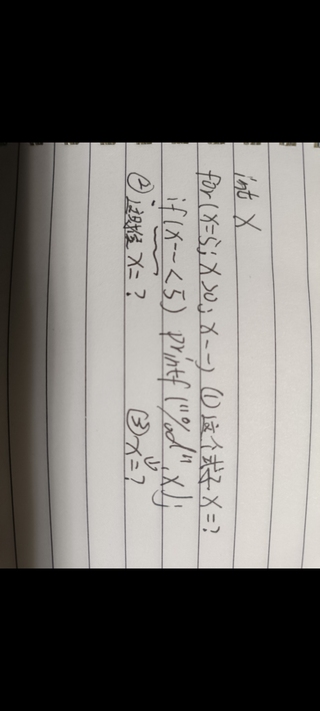 int X
for(X=5; X>0; X--) ①这个式子X=?
if(X--<5) printf("%d",X);
②这时候X=? ③X=?